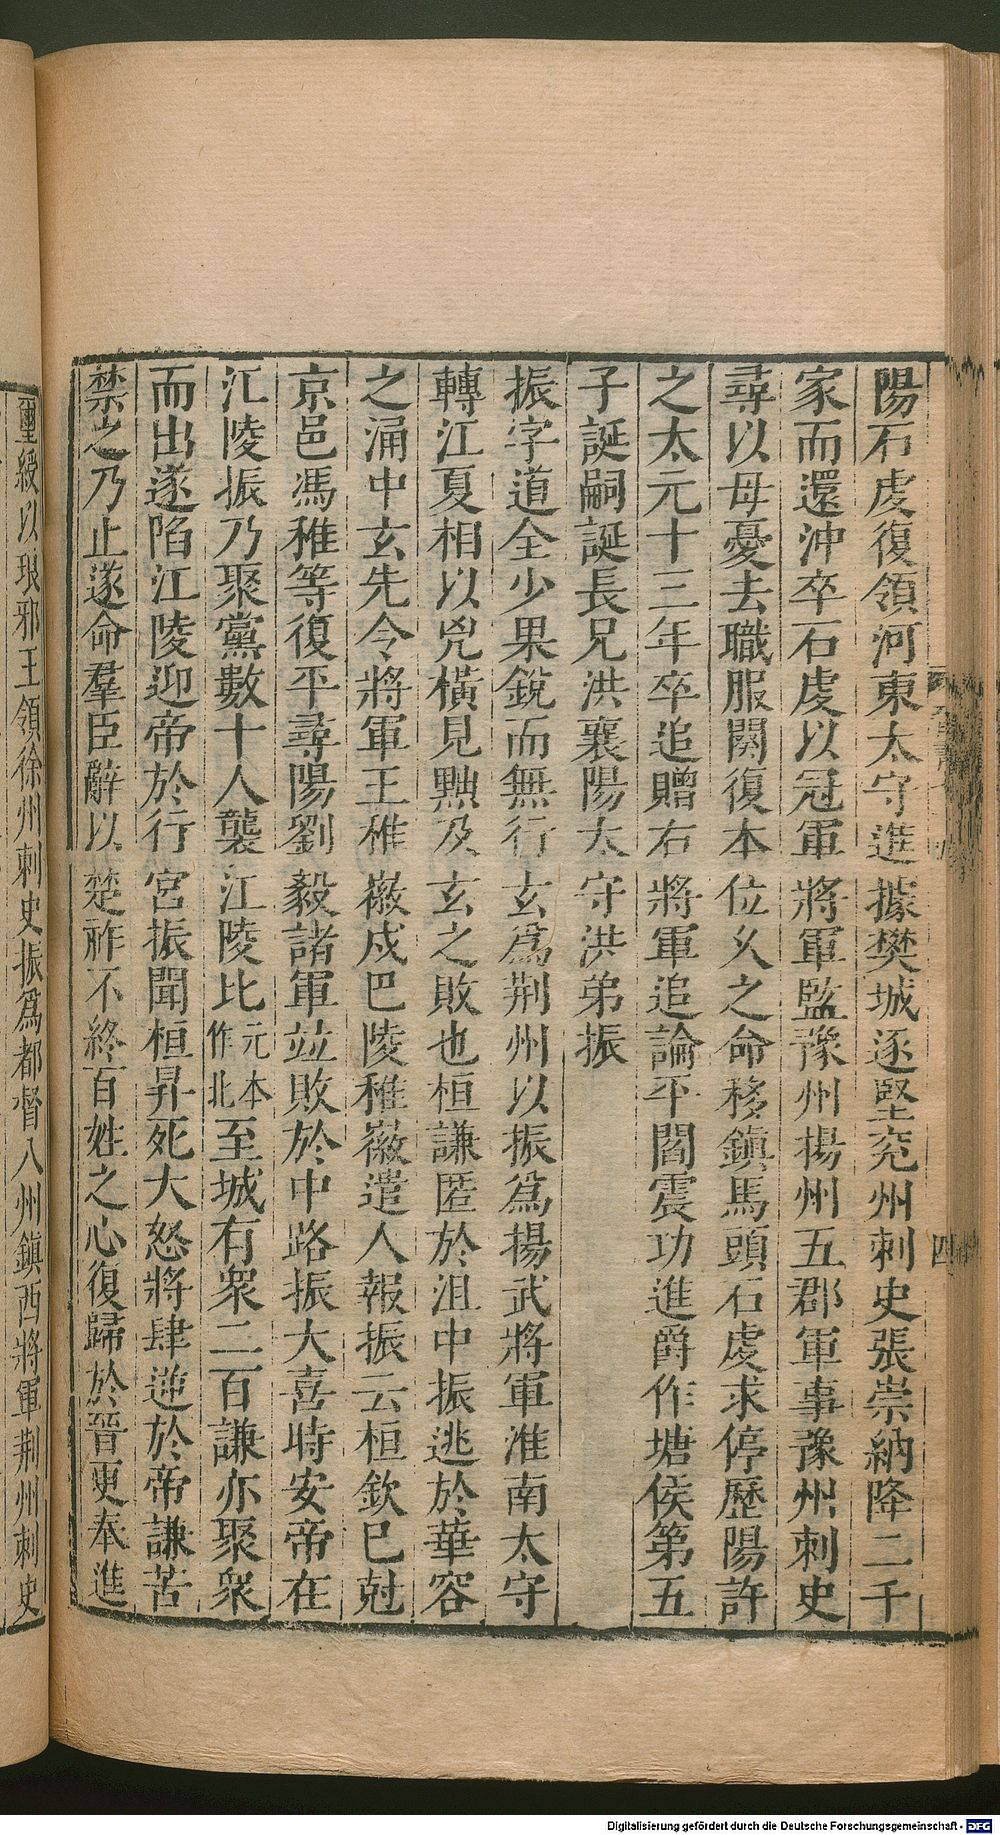 陽石虔復領河東太守進據樊城逐堅兖州刺史張崇納降二千
家而還沖卒石虔以冠軍將軍監豫州揚州五郡軍事豫州刺史
尋以母憂去職服闋復本位乆之命移鎮馬頭石虔求停歷陽許
之太元十三年卒追贈右將軍追論平閻震功進爵作塘侯第五
子誕嗣誕長兄洪襄陽太守洪弟振
振字道全少果銳而無行玄爲荆州以振爲揚武將軍淮南太守
轉江夏相以兇橫見黜及玄之敗也桓謙匿於沮中振逃於華容
之涌中玄先令將軍王稚徽戍巴陵稚徽遣人報振云桓欽巳尅
京邑馮稚等復平尋陽劉毅諸軍竝敗於中路振大喜時安帝在
江陵振乃聚黨數十人襲江陵比元本作北至城有衆二百謙亦聚衆
而出遂陷江陵迎帝於行宮振聞桓昇死大怒將肆逆於帝謙苦
禁之乃止遂命羣臣辭以楚祚不終百姓之心復歸於晉更奉進
璽綬以琅邪王領徐州刺史振爲都督八州鎮西將軍荆州刺史
四
Digitalisierung gefördert durch die Deutsche Forschungsgemeinschaft - DFG